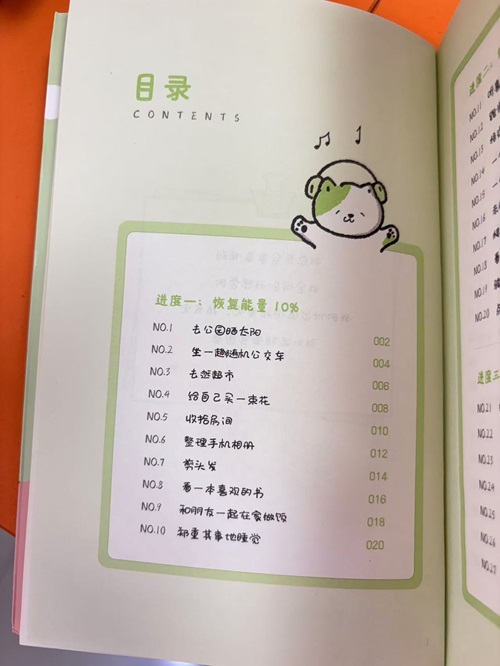 目录
CONTENTS
进度一：恢复能量 10%
NO.1 去公园晒太阳 002
NO.2 坐一趟随机公交车 004
NO.3 去逛超市 006
NO.4 给自己买一束花 008
NO.5 收拾房间 010
NO.6 整理手机相册 012
NO.7 剪头发 014
NO.8 看一本喜欢的书 016
NO.9 和朋友一起在家做饭 018
NO.10 郑重其事地睡觉 020
进度二：
NO.11
NO.12
NO.13
NO.14
NO.15
NO.16
NO.17
NO.18
NO.19
NO.20
进度三
NO.21
NO.22
NO.23
NO.24
NO.25
NO.26
NO.27